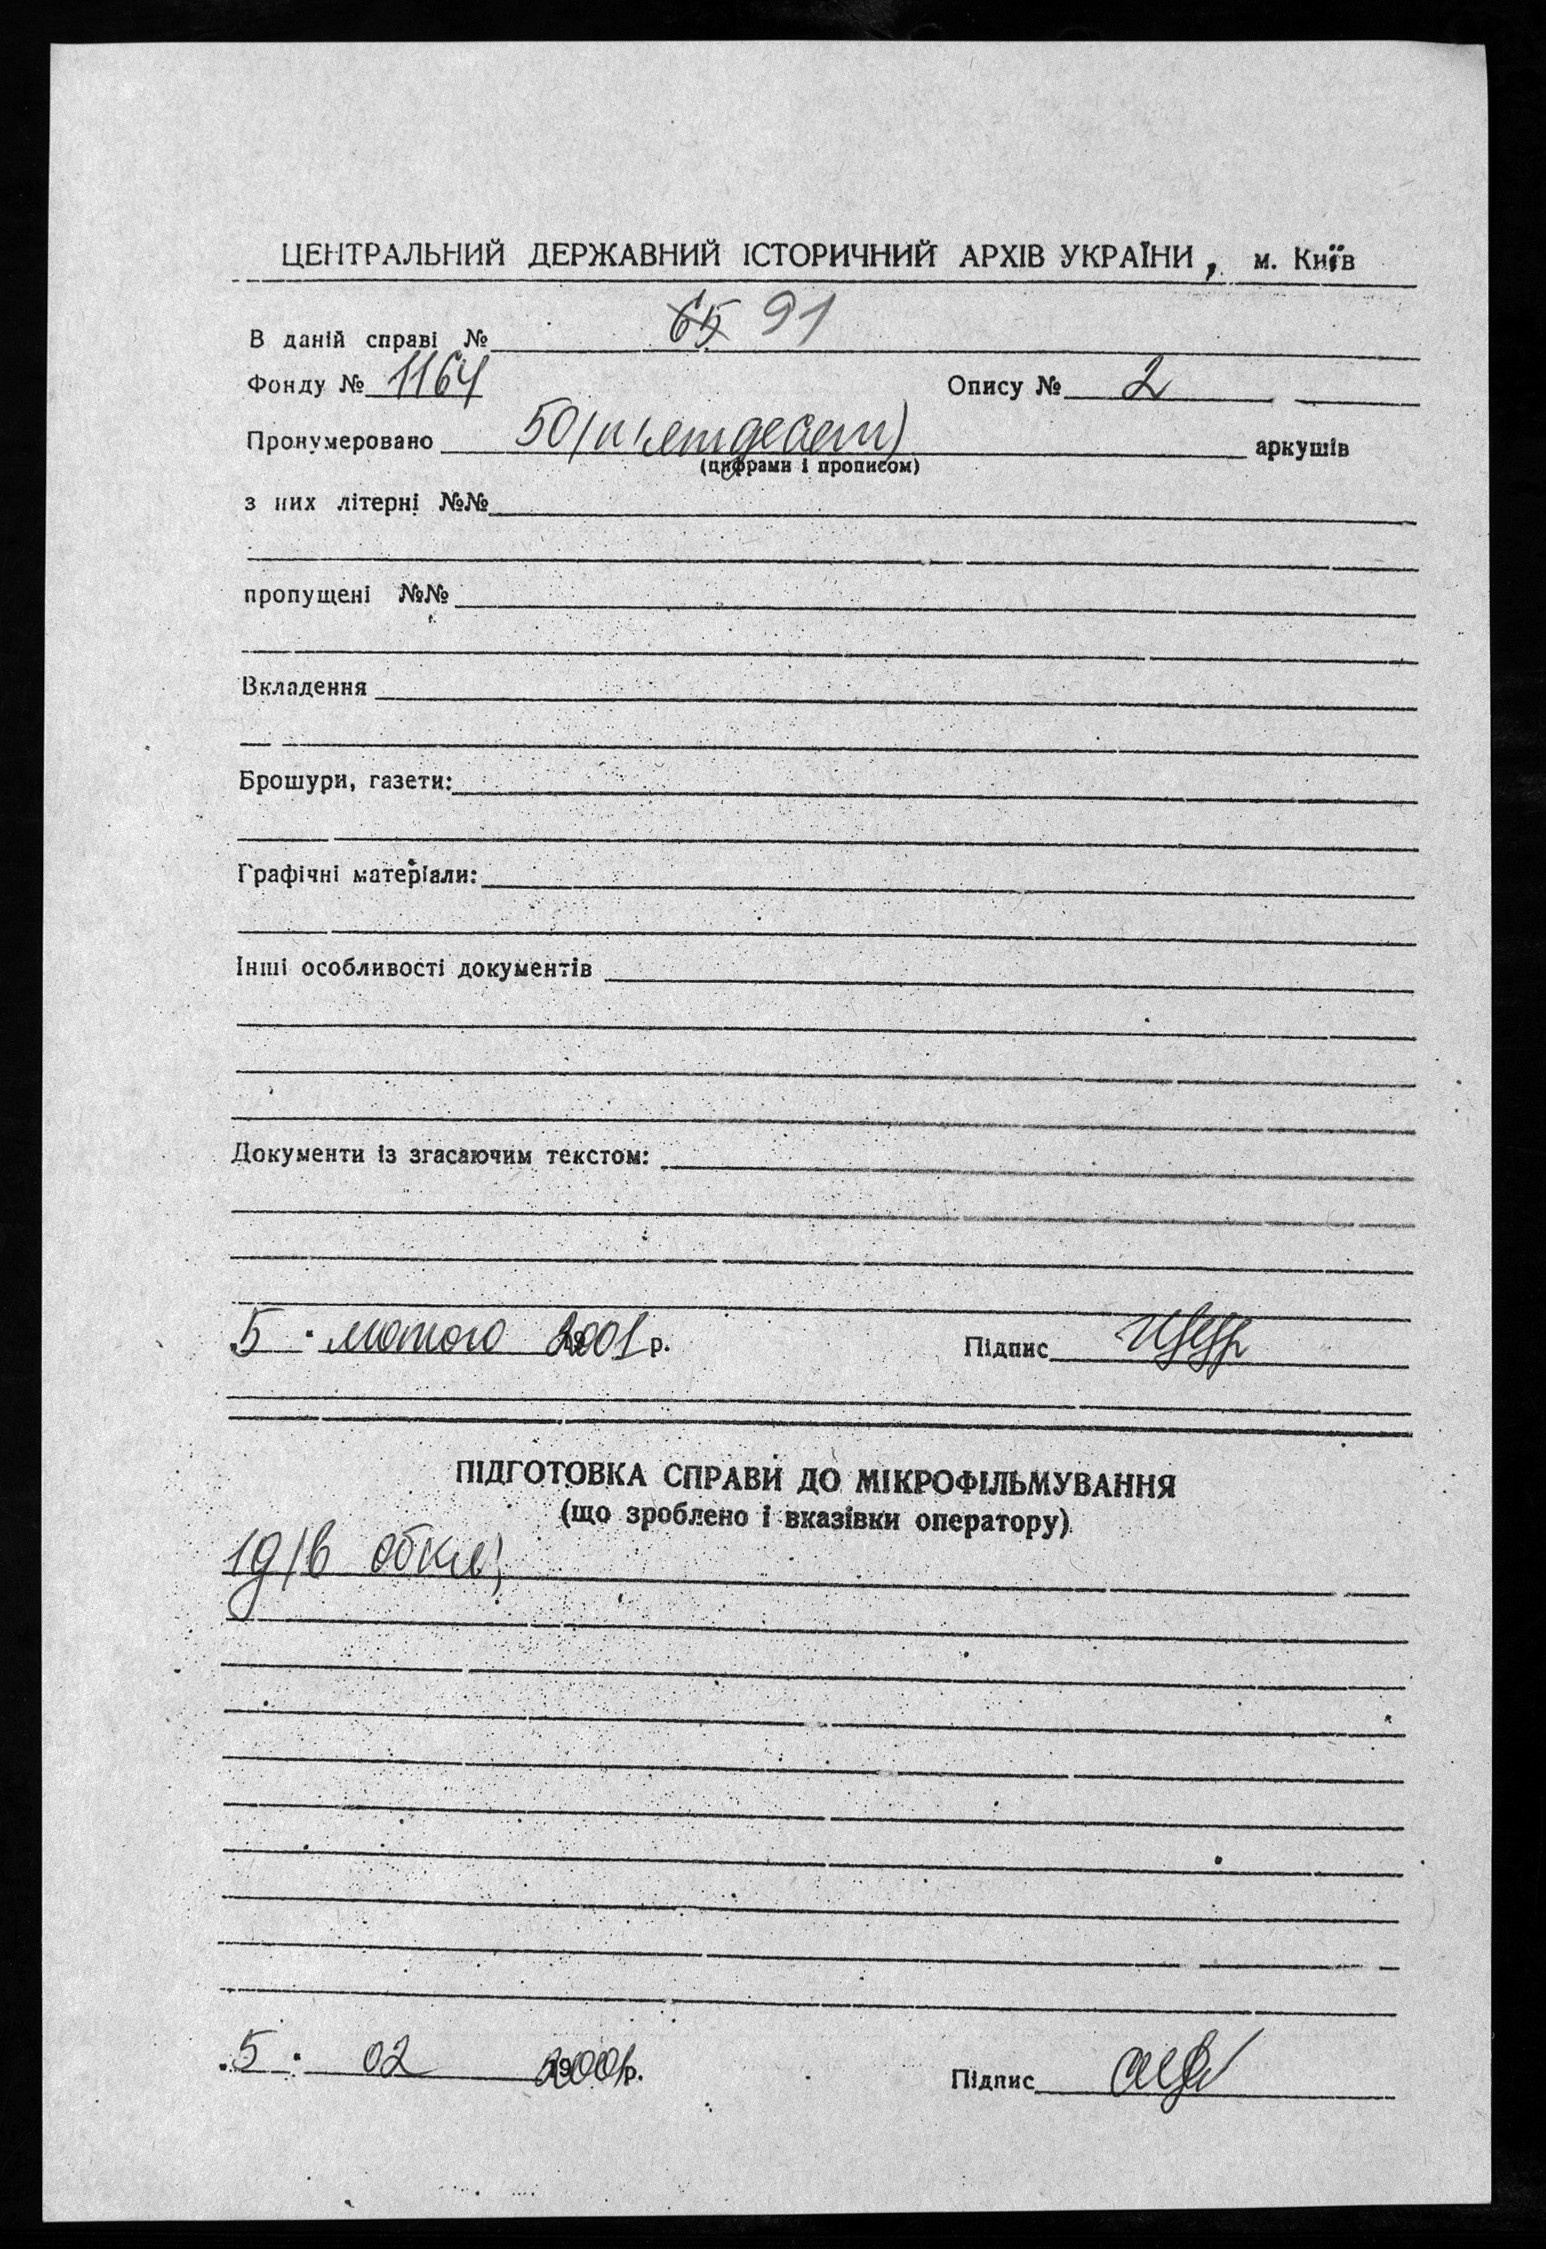 ЦЕНТРАЛЬНИЙ ДЕРЖАВНИЙ ІСТОРИЧНИЙ АРХІВ УКРАЇНИ, м. Київ
В даній справі № 65 91
Фонду № 1164 Опису № 2
Пронумеровано 50 (п'ятдесят) аркушів
(цифрами і прописом)
з них літерні №№
пропущені №№
Вкладення
Брошури, газети:
Графічні матеріали:
Інші особливості документів
Документи із згасаючим текстом:
5 лютого 2001 р.
Підпис
ПІДГОТОВКА СПРАВИ ДО МІКРОФІЛЬМУВАННЯ
(що зроблено і вказівки оператору)
5. 02 2001 р.
Підпис